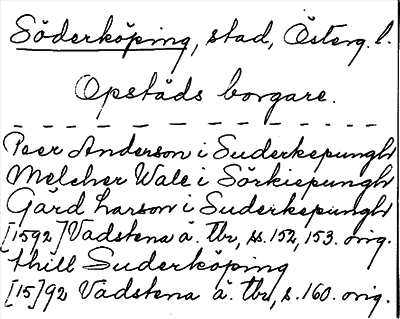 Söderköping, stad, Österg. l.
Opstäds borgare.
Peer Anderson i Suderkepunghr
Melcher Wale i Sörkiepunghr
Gård Larson i Suderkepunghr
[1592] Vadstena ä. tbr, ss. 152, 153. orig.
thill Suderköping
[15]92 Vadstena ä. tbr, s. 160. orig.